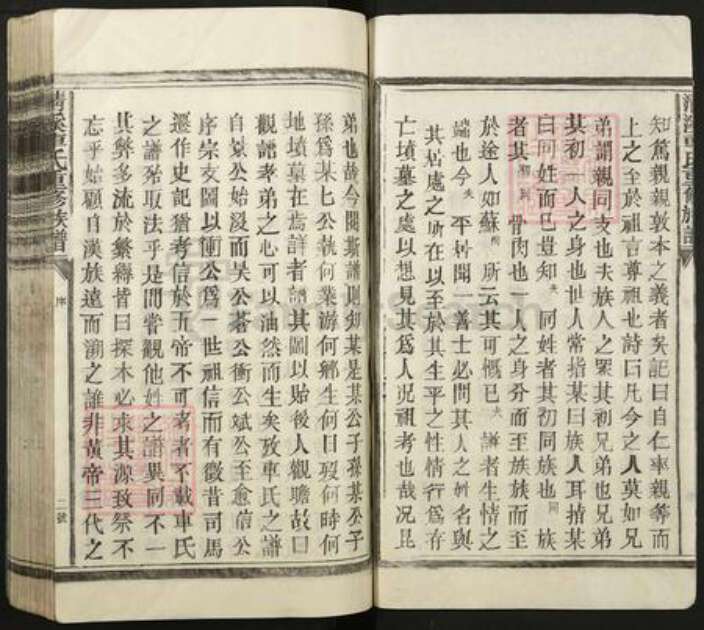 知篤親親敦本之義者矣記曰自仁率親等而
上之至於祖言尊祖也詩曰凡今之人莫如兄
弟謂親同支也夫族人之眾其初兄弟也兄弟
其初一人之身也世人常指某曰族人耳指某
曰同姓而已豈知夫同姓者其初同族也同族
者其初骨肉也一人之身分而至族族而至
於途人如蘇所云其可慨已夫譜者生情之
端也今夫平居聞一善士必問其人之姓名與
其居處之所在以至於其生平之性情行為存
亡墳墓之處以想見其為人況祖考也哉况昆
弟也哉今閱斯譜則知某是某公子孫某公子
孫為某七公執何業游何鄉生何日歿何時何
地墳墓在焉詳者譜其圖以貽後人觀瞻故曰
觀譜孝弟之心可以油然而生矣攷車氏之譜
自景公始浸而昊公蒼公衝公斌公至愈信公
序宗支圖以衝公為一世祖信而有徵昔司馬
遷作史記猶考信於五帝不可考者不載車氏
之譜殆取法乎是間嘗觀他姓之譜異同不一
其弊多流於繁褥皆曰探本必求其源致祭不
忘乎始顧自漢族遠而溯之誰非黃帝三代之
清溪車氏重修族譜
序
二號